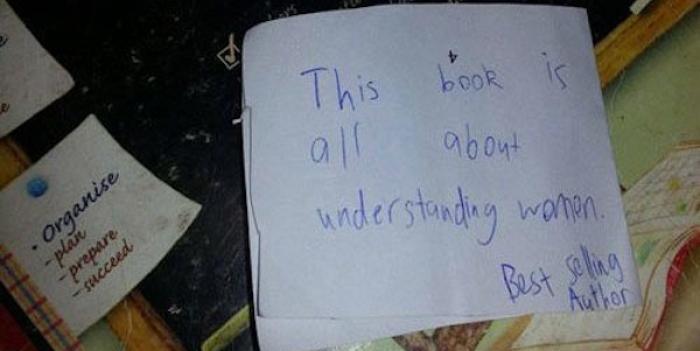 This book is
all about
understanding women.
Best selling
Author
• Organise
- plan
- prepare
- succeed